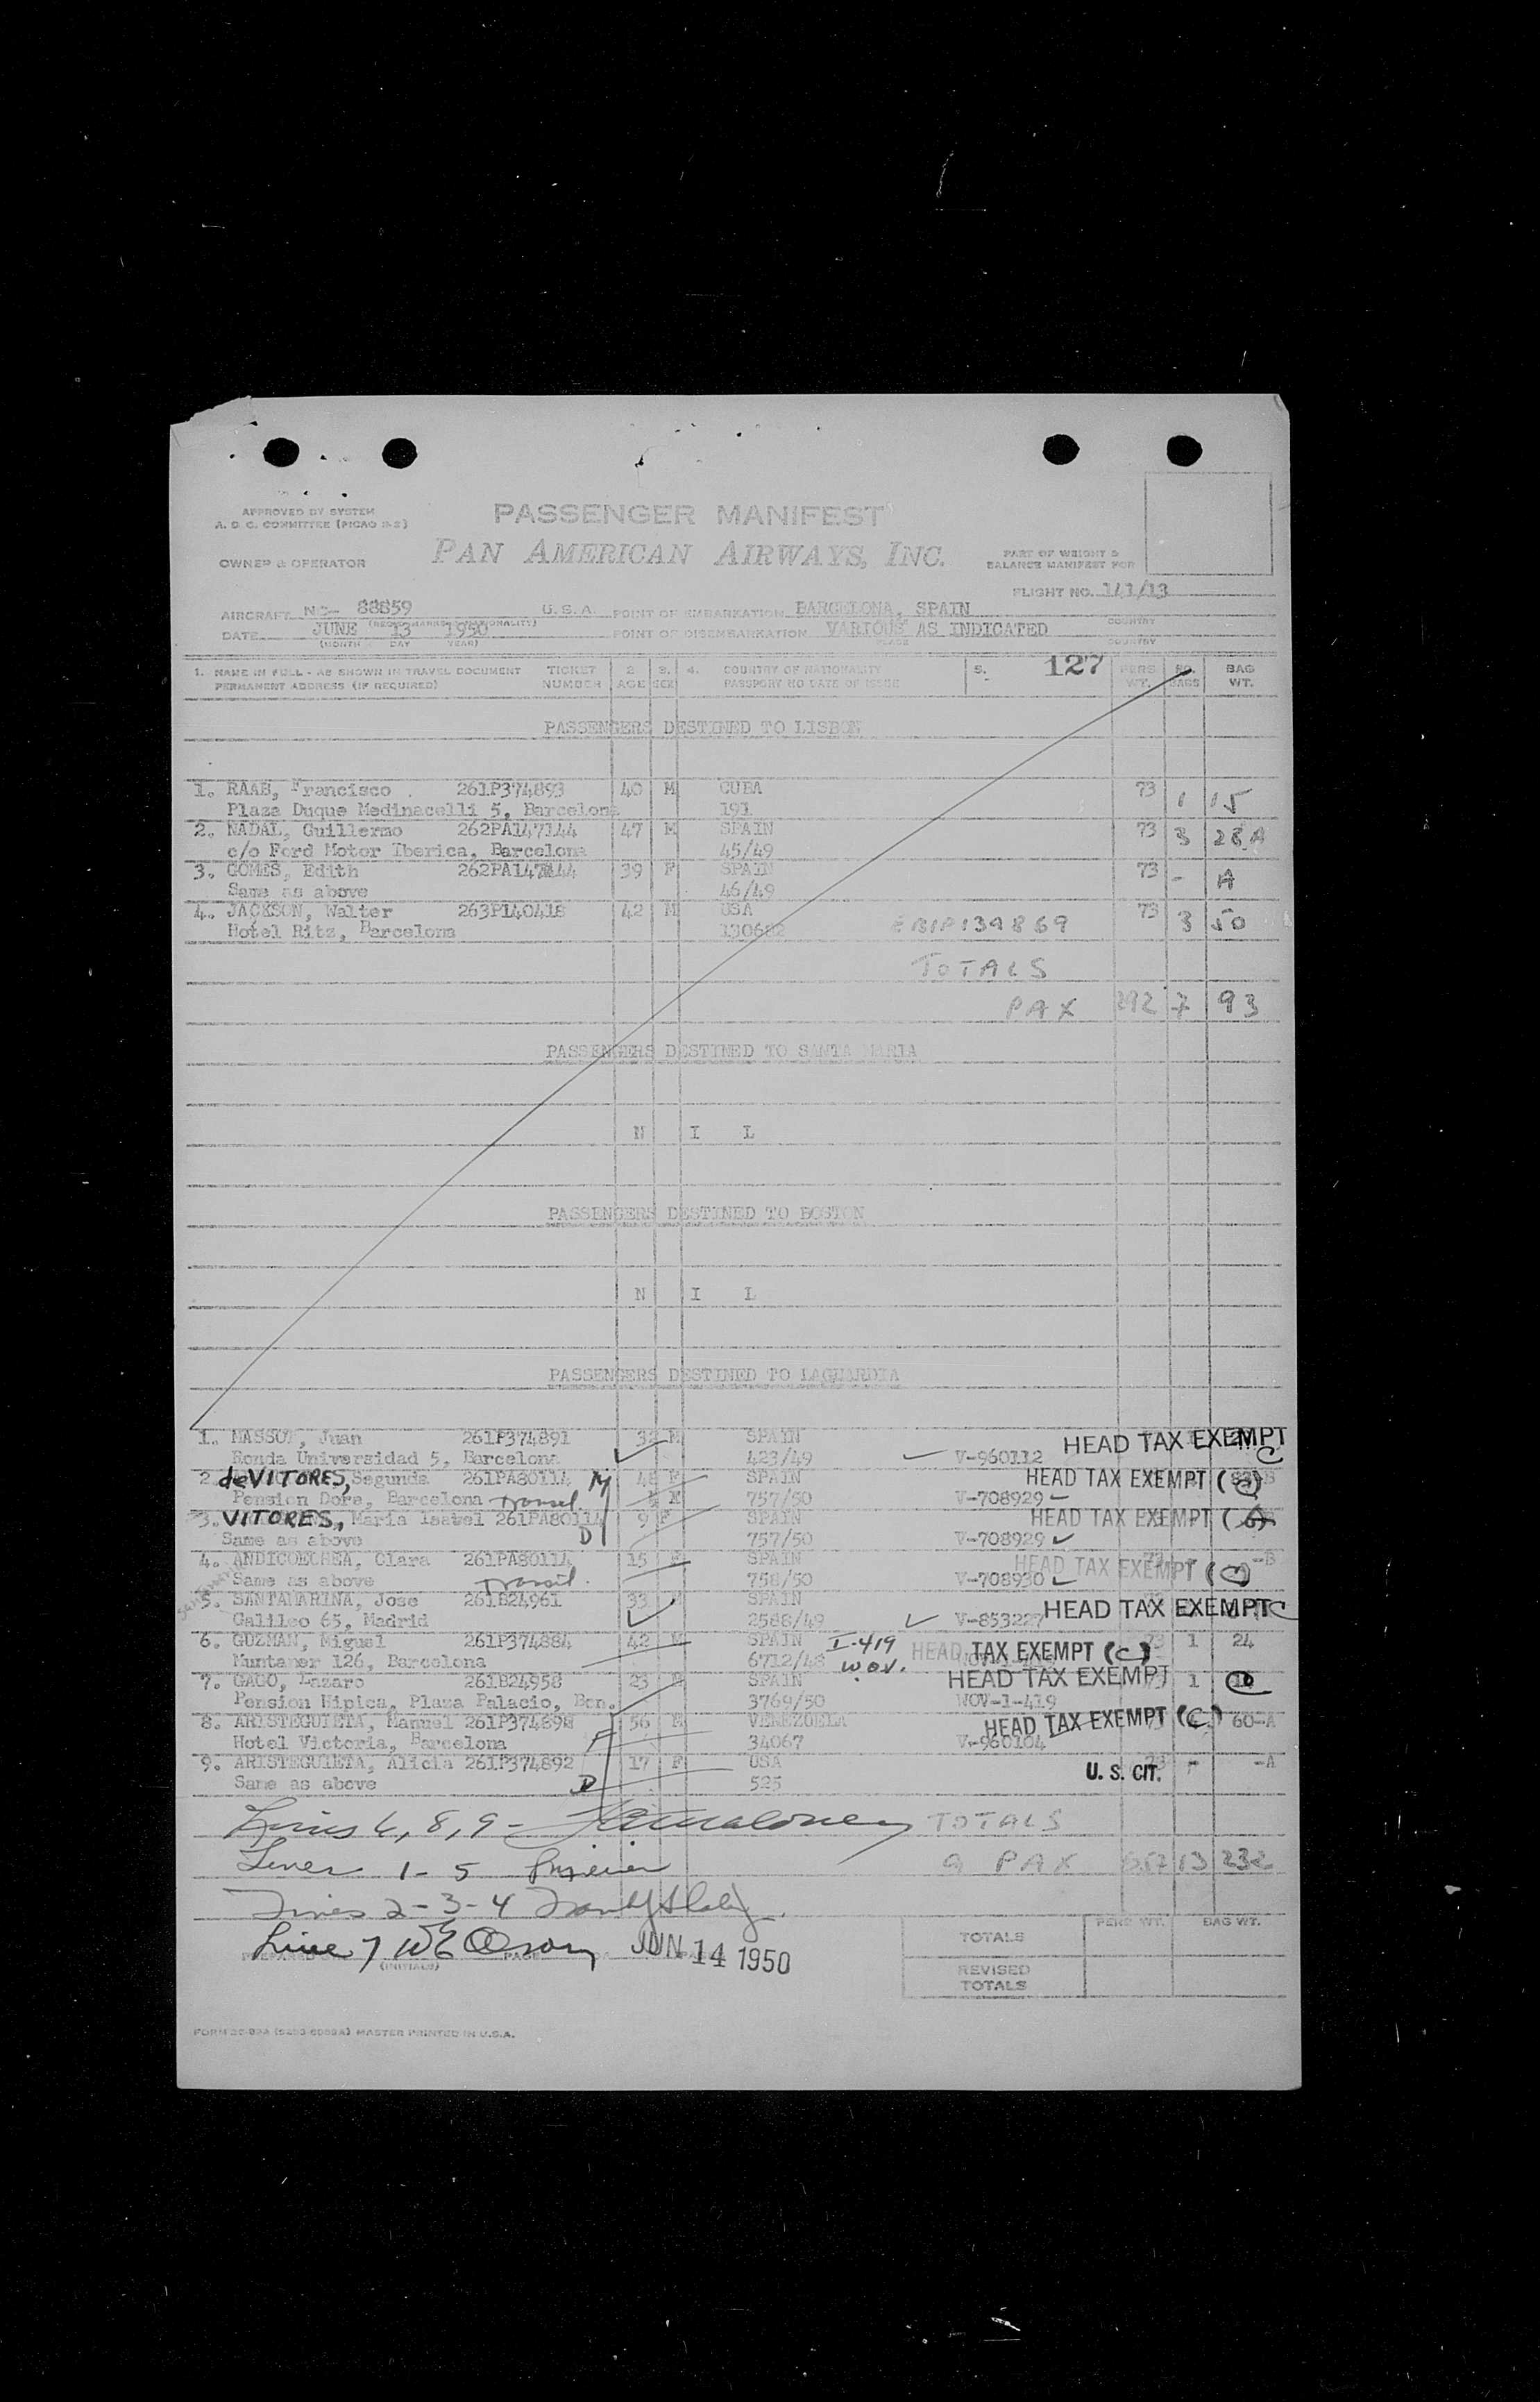 APPROVED BY SYSTEM
A. O. C. COMMITTEE (PICAO
PASSENGER MANIFEST
OWNER & OPERATOR
PAN AMERICAN AIRWAYS, INC.
PART OF WEIGHT &
BALANCE MANIFEST FOR
FLIGHT NO. 1/1/13
AIRCRAFT NC- 88859 U.S.A. POINT OF EMBARKATION BARCELONA, SPAIN
COUNTRY
DATE JUNE 13 1950 POINT OF DISEMBARKATION VARIOUS AS INDICATED
(MONTH DAY YEAR) PLACE COUNTRY
1. NAME IN FULL - AS SHOWN IN TRAVEL DOCUMENT TICKET 2. 3. 4. COUNTRY OF NATIONALITY 5. 127 PERS NO BAG
PERMANENT ADDRESS (IF REQUIRED) NUMBER AGE SEX PASSPORT NO DATE OF ISSUE WT. BAGS WT.
PASSENGERS DESTINED TO LISBON
1. RAAB, Francisco . 261P374893 40 M CUBA 73 1 15
Plaza Duque Medinacelli 5, Barcelona 191
2. NADAL, Guillermo 262PA147144 47 M SPAIN 73 3 28 A
c/o Ford Motor Iberica, Barcelona 45/49
3. GOMES, Edith 39 F SPAIN 73 - A
Same as above 46/49
4. JACKSON, Walter 263P140418 42 M USA 73 3 50
Hotel Ritz, Barcelona 130682 139869
TOTALS
PAX 292 7 93
PASSENGERS DESTINED TO SANTA MARIA
N I L
PASSENGERS DESTINED TO BOSTON
N I L
PASSENGERS DESTINED TO LAGUARDIA
1. MASSOT, Juan 261P374891 32 M SPAIN HEAD TAX EXEMPT
Ronda Universidad 5, Barcelona 423/49 V-960112 C
2. deVITORES, Segunda 261PA80114 48 F SPAIN HEAD TAX EXEMPT (C)
Pension Dore, Barcelona Transit. 757/50 V-708929
3. VITORES, Maria Isabel 261PA80114 9 F SPAIN HEAD TAX EXEMPT
Same as above D 757/50 V-708929
4. ANDICOECHEA, Clara 261PA80114 15 F SPAIN HEAD TAX EXEMPT (C) -B
Same as above Transit. 758/50 V-708930
5. SANTAMARINA, Jose 261B24961 33 M SPAIN HEAD TAX EXEMPT C
Galileo 65, Madrid 2588/49 V-853227
6. GUZMAN, Miguel 261P374884 42 M SPAIN I-419 HEAD TAX EXEMPT (C) 73 1 24
Muntaner 126, Barcelona 6712/48 W.O.V.
7. GAGO, Lazaro 261B24958 23 M SPAIN HEAD TAX EXEMPT 73 1
Pension Hipica, Plaza Palacio, Bcn. 3769/50 WOV-1-419
8. ARISTEGUIETA, Manuel 261P374898 56 M VENEZUELA HEAD TAX EXEMPT (C) 60-A
Hotel Victoria, Barcelona 34067 V-960104
9. ARISTEGUIETA, Alicia 261P374892 17 F USA U. S. CIT. 73 - -A
Same as above D 525
Lines 6, 8, 9 - TOTALS
Lines 1 - 5 9 PAX 657 13 232
Lines 2 - 3 - 4
Line 7 JUN 14 1950
(INITIALS) PAGE
PERS WT. BAG WT.
TOTALS
REVISED
TOTALS
MASTER PRINTED IN U.S.A.